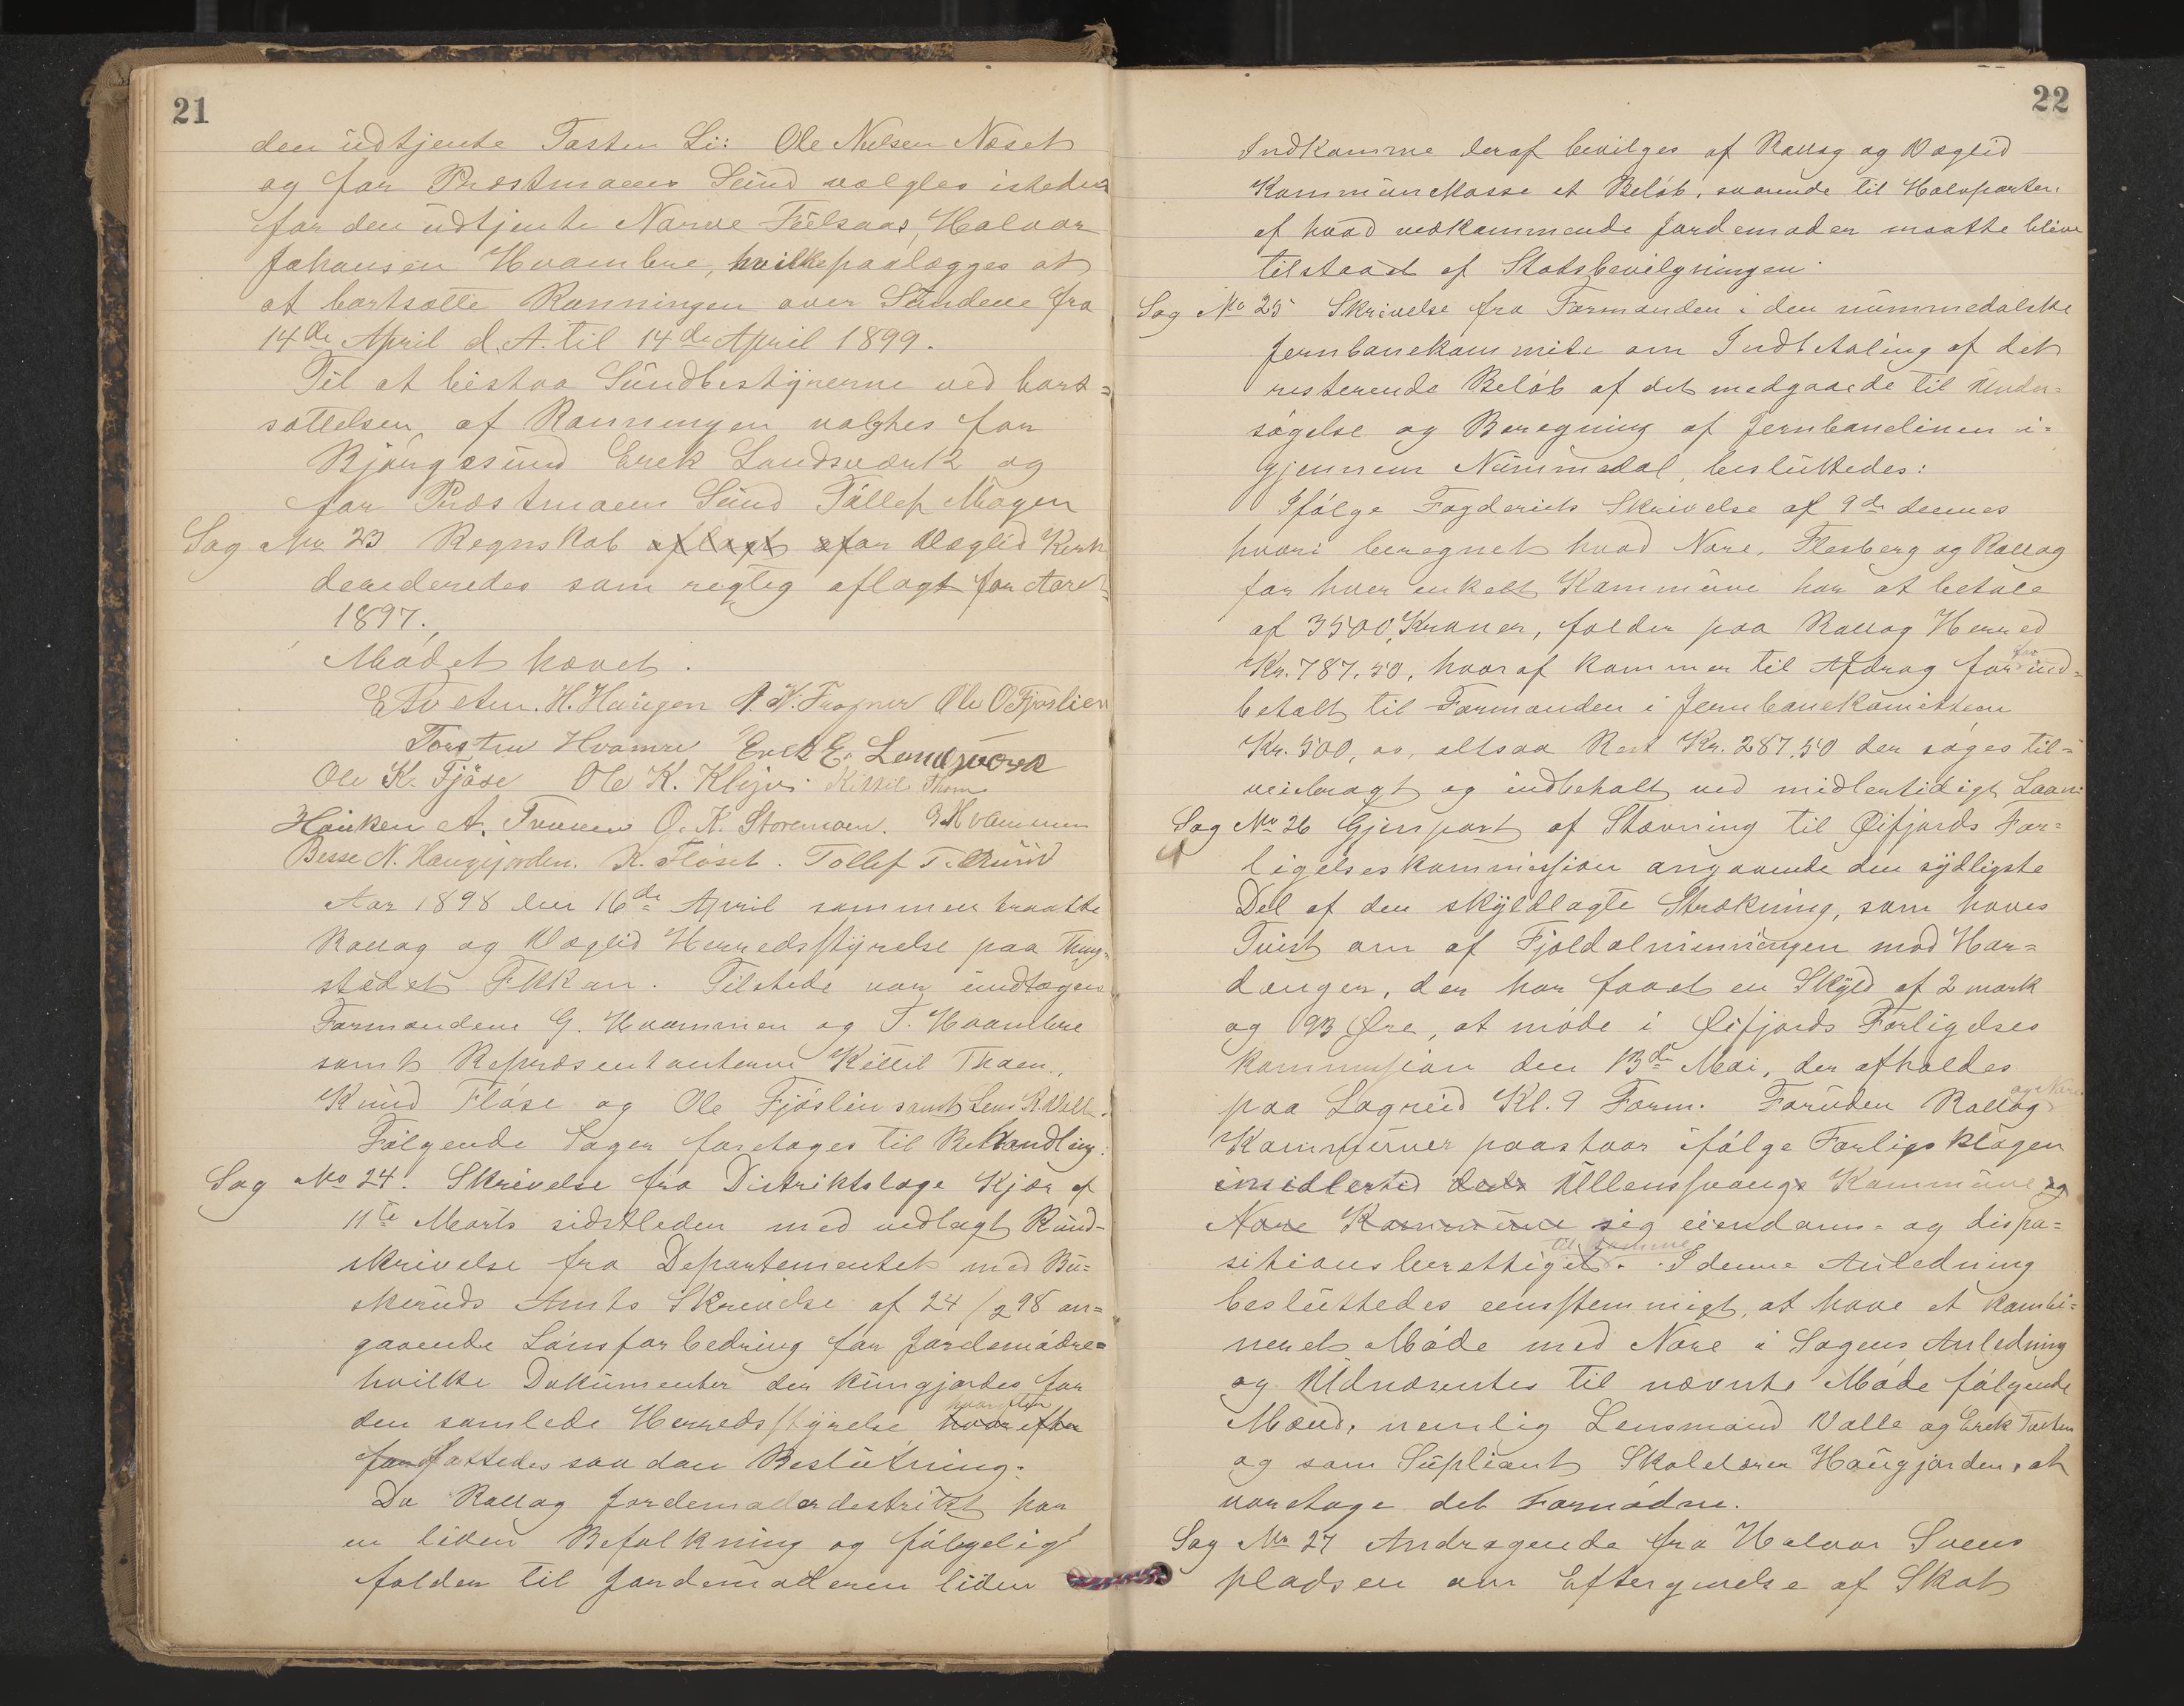 21
den udtjente Tosten Li: Ole Nilsen Næset
og for Præstmoens Sund valgtes isteden
for den udtjente Narve Fulsaas, Halvor
Johansen Hvambre, hvilke paalægges at
at bortsætte Roningen over Sundene fra
14de April d. A. til 14de April 1899.
Til at bistaa Sundbestyrerne ved bort=
sættelsen af Roningen valgtes for
Bjørgesund Erek Landsværk og
for Præstmoen Sund Tollef Mogen
Sag No 23 Regnskab aflagt for Væglid Kirk
desideredes som rigtig aflagt for Aaret
1897.
Mødet hævet.
E Tveten. H. Haugen A. K. Fragner Ole O Fjøslien
Torsten Hvamre Erek E. Landsverk
Ole K. Fjøse Ole K. Klejvi Kittil Thoen
Haaken A. Traaen O. K. Storemoen. G Hvammen
Besse N. Haugjorden. K. Fløset. Tollef T. Ruud
Aar 1898 den 16de April sammentraatte
Rollag og Væglid Herredsstyrelse paa Thing-
stedet Flikan. Tilstede var undtagen
Formanden G. Hvammen og T. Hvambre
samt Repræsentanterne Kittil Thoen,
Knud Fløse og Ole Fjøslin samt Lens R. Valle.
Følgende Sager foretages til Behandling:
Sag No 24. Skrivelse fra Distriktslæge Kjær af
11te Marts sidstleden med vedlagt Rund-
skrivelse fra Departementet med Bu=
skeruds Amts Skrivelse af 24/2 98 an=
gaaende Lønsforbedring for Jordemødre=
hvilke Dokumenter der kungjordes for
hvorefter
den samlede Herredsstyrelse hvorefter
forfattedes saadan Beslutning:
Da Rollag Jordemoderdestrikt har
en liden Befolkning og følgelig
falder til Jordemoderen liden
22
Indkomme deraf bevilges af Rollag og Væglid
Kommunekasse et Beløb, svarende til Halvparten
af hvad vedkommende Jordemoder maatte blive
tilstaaet af Statsbevilgningen.
Sag No 25 Skrivelse fra Formanden i den nummedalske
Jernbanekommite om Indbetaling af det
resterende Beløb af det medgaaede til Under=
søgelse og Beregning af Jernbanelinen i=
gjennem Nummedal, besluttedes:
Ifølge Fogderiets Skrivelse af 9de dennes
hvori beregnet hvad Nore, Flesberg og Rollag
for hver enkelt Kommune har at betale
af 3500 Kroner, falder paa Rollag Herred
for
Kr. 787.50, hvoraf kommer til Afdrag for ind=
betalt til Formanden i Jernbanekomitteen
Kr. 500,00, altsaa Rest Kr. 287.50 der søges til=
veiebragt og indbetalt ved midlertidigt Laan.
Sag No 26 Gjenpart af Stævning til Øifjords For=
ligelseskommission angaaende den sydligste
Del af den skyldlagte Strækning, som haves
Tvist om af Fjeldalmenningen mod Har=
danger, der har faaet en Skyld af 2 mark
og 93 Øre, at møde i Øifjords Forligelses
kommission den 13de Mai, der afholdes
og Nore
paa Lagreid Kl. 9 Form. Foruden Rollag
Kommuner paastaar ifølge Forligsklagen
imidlertid dels Ullensvangs Kommune og
Nore Kommune sig eiendoms= og dispo=
til samme
sitionsberettiget. I denne Anledning
besluttedes eensstemmigt, at have et kombi=
neret Møde med Nore i Sagens Anledning
og Udnævntes til nævnte Møde følgende
Mænd, nemlig Lensmand Valle og Erek Tveten
og som Supliant Skolelærer Haugjorden, at
varetage det Fornødne.
Sag No 27 Andragende fra Halvor Svens
pladsen om Eftergivelse af Skat